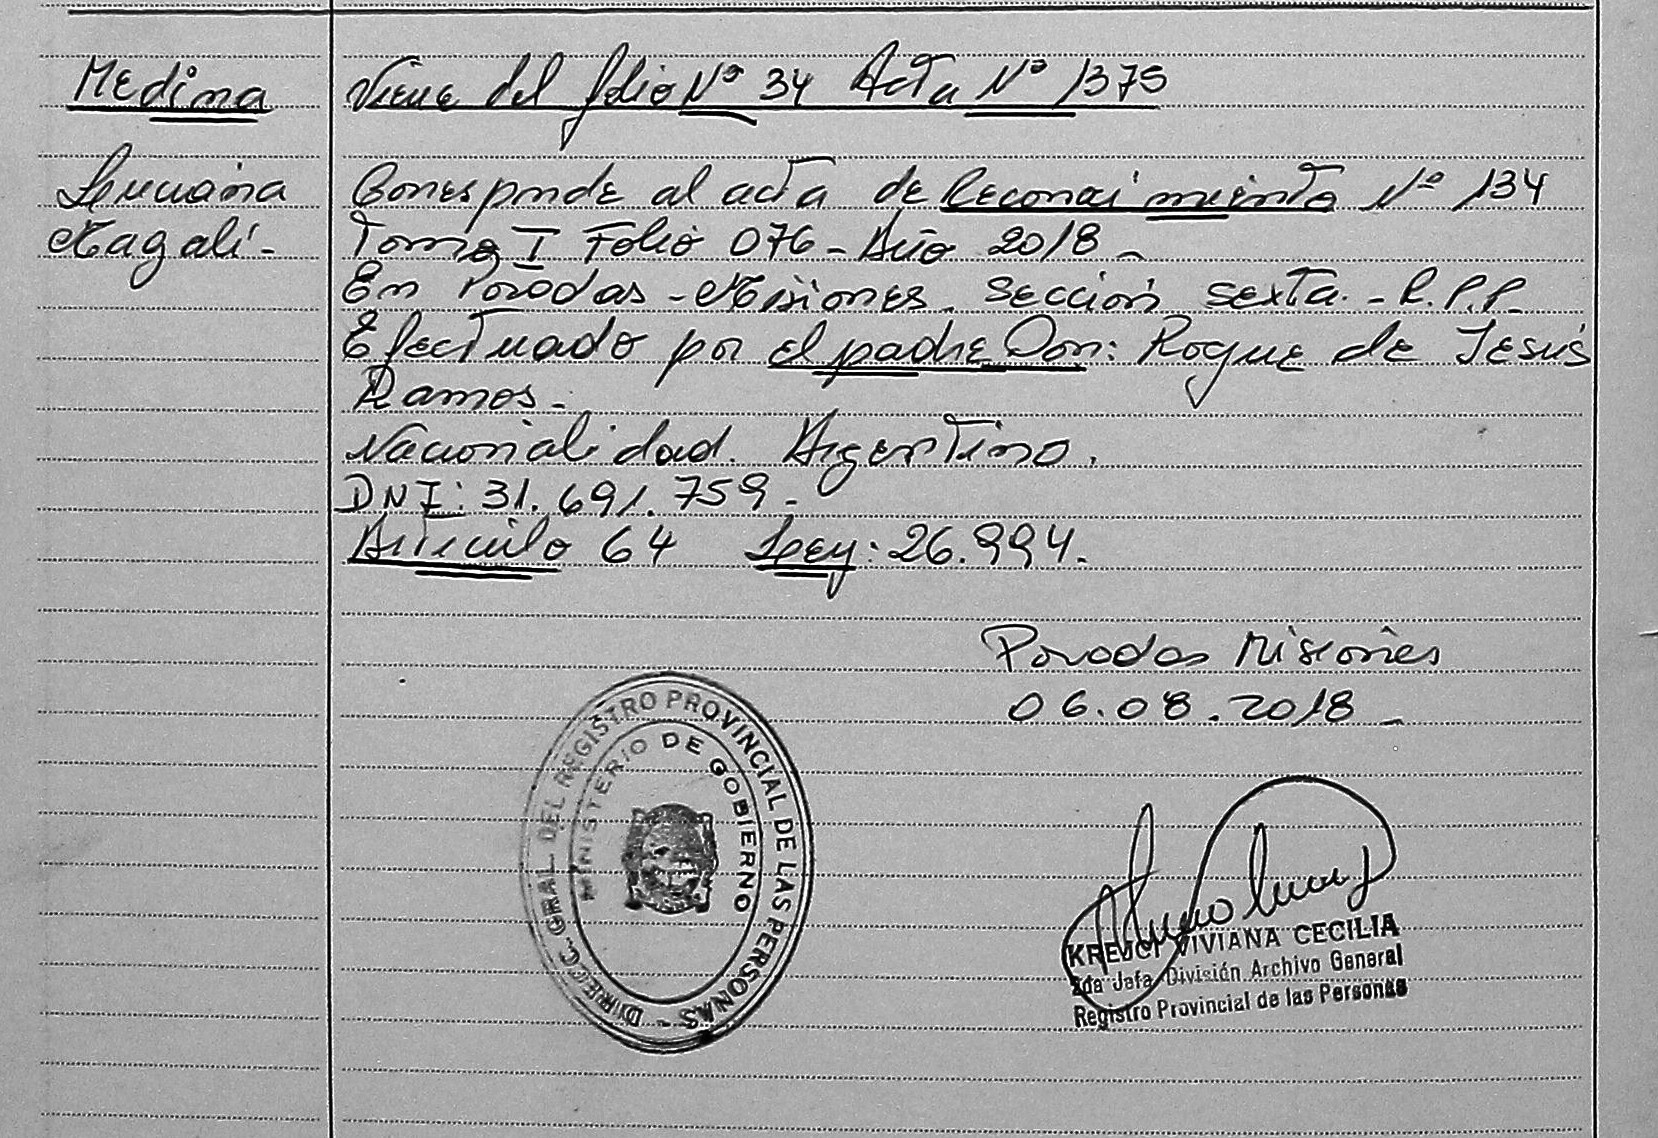 Medina
Luciana
Magali -
Viene del folio Nº 34 Acta Nº 1375
Corresponde al acta de Reconocimiento Nº 134
Tomo I Folio 076 - Año 2018 -
En Posadas - Misiones. Sección sexta. - R.P.P.
Efectuado por el padre Don: Roque de Jesús
Ramos -
Nacionalidad. Argentino.
DNI: 31.691.759 -
Artículo 64 Ley: 26.994.
Posadas Misiones
06.08.2018 -
DIRECC. GRAL. DEL REGISTRO PROVINCIAL DE LAS PERSONAS -
MINISTERIO DE GOBIERNO
KREJCI VIVIANA CECILIA
2da Jefa División Archivo General
Registro Provincial de las Personas